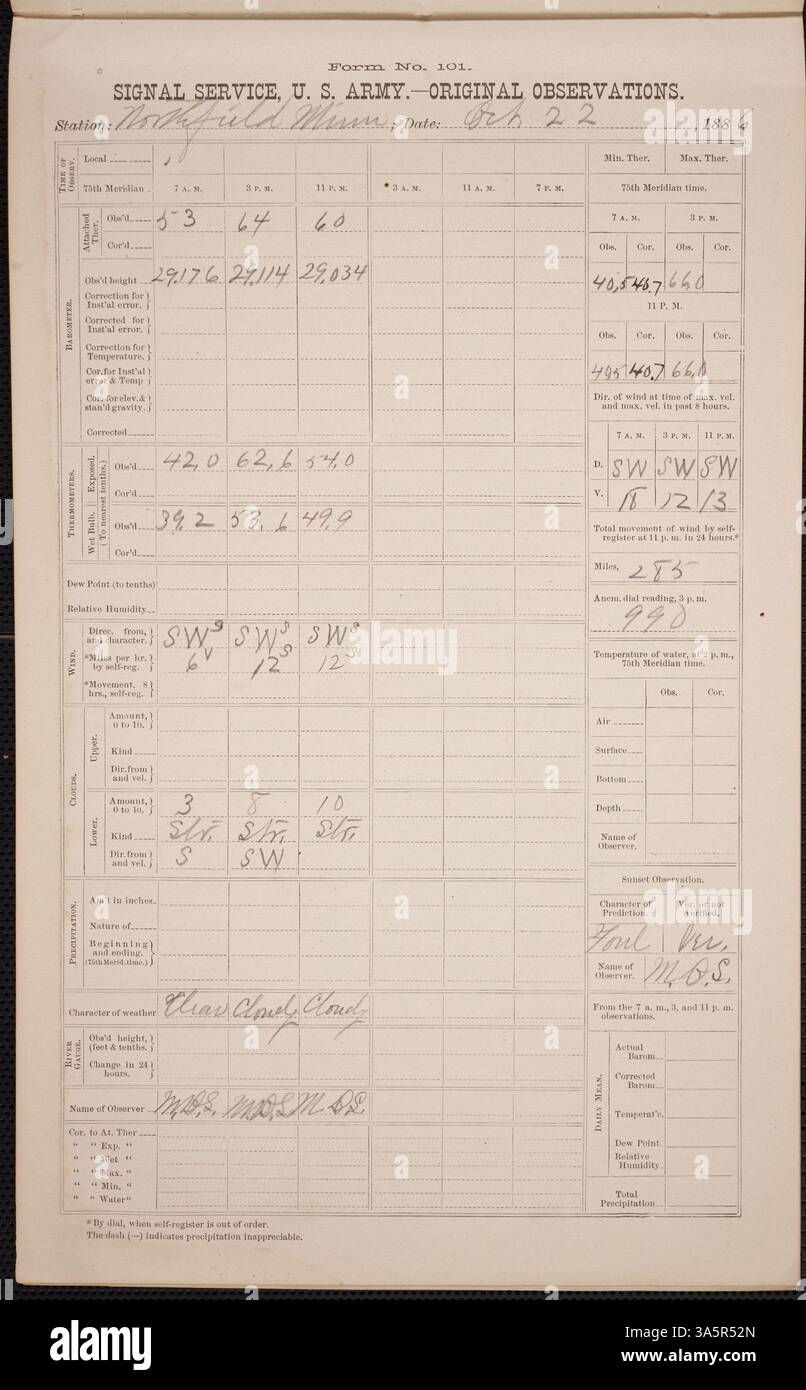 Form No. 101.
SIGNAL SERVICE, U. S. ARMY.—ORIGINAL OBSERVATIONS.
Station: Northfield Minn; Date: Oct 22, 1886
TIME OF OBSERV.
Local
75th Meridian 7 A. M. 3 P. M. 11 P. M. * 3 A. M. 11 A. M. 7 P. M.
BAROMETER.
Attached Ther.
Obs'd 53 64 60
Cor'd
Obs'd height 29.176 29.114 29.034
Correction for Inst'al error.
Corrected for Inst'al error.
Correction for Temperature.
Cor. for Inst'al error & Temp
Cor. for elev. & stan'd gravity.
Corrected
THERMOMETERS.
(To nearest tenths.)
Exposed.
Obs'd 42.0 62.6 54.0
Cor'd
Wet Bulb.
Obs'd 39.2 53.6 49.9
Cor'd
Dew Point (to tenths)
Relative Humidity
WIND.
Direc. from, and character. SW S SW S SW S
*Miles per hr. by self-reg. 6 12 12
*Movement, 8 hrs., self-reg.
CLOUDS.
Upper.
Amount, 0 to 10.
Kind
Dir. from and vel.
Lower.
Amount, 0 to 10. 3 8 10
Kind Str. Str. Str.
Dir. from and vel. S SW
PRECIPITATION.
Am't in inches
Nature of
Beginning and ending. (75th Merid. time.)
Character of weather Clear Cloudy Cloudy
RIVER GAUGE.
Obs'd height, (feet & tenths.
Change in 24 hours.
Name of Observer
Cor. to At. Ther
" " Exp. "
" " Wet "
" " Max. "
" " Min. "
" " Water"
* By dial, when self-register is out of order.
The dash (—) indicates precipitation inappreciable.
Min. Ther. Max. Ther.
75th Meridian time.
7 A. M. 3 P. M.
Obs. Cor. Obs. Cor.
40.5 40.7 66.0
11 P. M.
Obs. Cor. Obs. Cor.
40.5 40.7 66.0
Dir. of wind at time of max. vel. and max. vel. in past 8 hours.
7 A. M. 3 P. M. 11 P. M.
D. SW SW SW
V. 18 12 13
Total movement of wind by self-register at 11 p. m. in 24 hours.*
Miles, 285
Anem. dial reading, 3 p. m.
990
Temperature of water, at 2 p. m., 75th Meridian time.
Obs. Cor.
Air
Surface
Bottom
Depth
Name of Observer.
Sunset Observation.
Character of Prediction. Ver. or not Verified.
Foul Ver.
Name of Observer.
From the 7 a. m., 3, and 11 p. m. observations.
DAILY MEAN.
Actual Barom
Corrected Barom.
Temperat'e.
Dew Point
Relative Humidity.
Total Precipitation.
alamy
alamy
Image ID: 3A5R52N
www.alamy.com